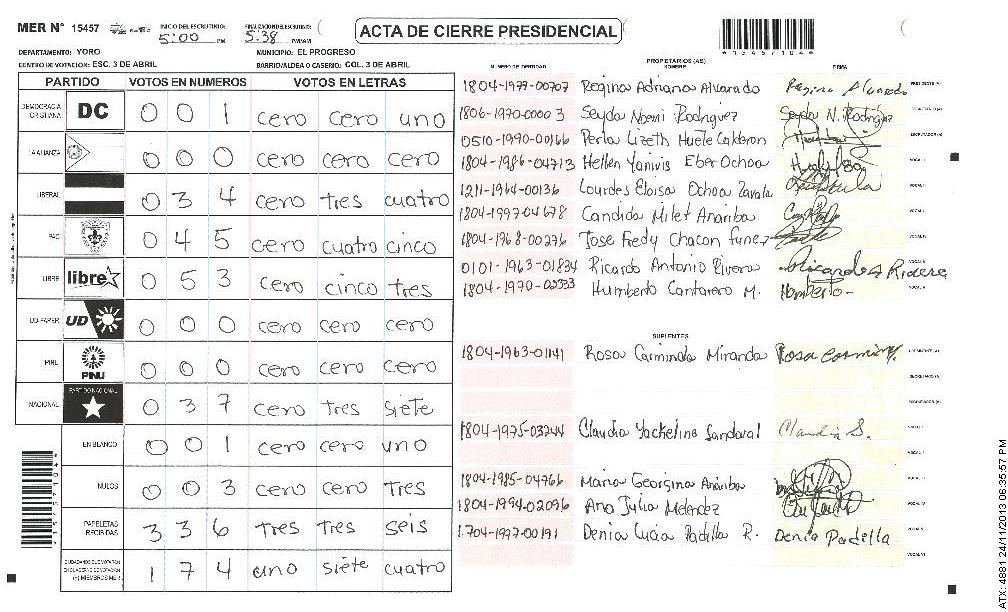 MER N° 15457 INICIO DEL ESCRUTINIO: 5:00 PM FINALIZACION DEL ESCRUTINIO: 5:38 PM/AM
ACTA DE CIERRE PRESIDENCIAL
DEPARTAMENTO: YORO MUNICIPIO: EL PROGRESO
CENTRO DE VOTACION: ESC. 3 DE ABRIL BARRIO/ALDEA O CASERIO: COL. 3 DE ABRIL
PARTIDO VOTOS EN NUMEROS VOTOS EN LETRAS
DEMOCRACIA CRISTIANA DC 0 0 1 cero cero uno
LA ALIANZA 0 0 0 cero cero cero
LIBERAL 0 3 4 cero tres cuatro
PAC 0 4 5 cero cuatro cinco
LIBRE libre 0 5 3 cero cinco tres
UD-FAPER UD 0 0 0 cero cero cero
PINU PINU 0 0 0 cero cero cero
NACIONAL PARTIDO NACIONAL 0 3 7 cero tres siete
EN BLANCO 0 0 1 cero cero uno
NULOS 0 0 3 cero cero tres
PAPELETAS RECIBIDAS 3 3 6 tres tres seis
CIUDADANOS QUE VOTARON EN CUADERNO DE VOTACION (+) MIEMBROS MER 1 7 4 uno siete cuatro
NUMERO DE IDENTIDAD PROPIETARIOS (AS) NOMBRE FIRMA
1804-1979-00707 Regina Adriana Alvarado Regina Alvarado PRESIDENTE (A)
1806-1970-0000 3 Seyda Noemi Rodriguez Seyda N. Rodriguez SECRETARIO (A)
0510-1990-00166 Perla Lizeth Huete Calderon ESCRUTADOR (A)
1804-1986-04713 Hellen Yanivis Eber Ochoa VOCAL I
1211-1964-00136 Lourdes Eloisa Ochoa Zavala VOCAL II
1804-1997-04678 Candida Milet Anariba
1804-1968-00276 Jose Fredy Chacon Funez VOCAL IV
0101-1963-01834 Ricardo Antonio Rivera Ricardo A Rivera
1804-1970-02333 Humberto Cantarero M. Humberto
SUPLENTES
1804-1963-01141 Rosa Carminda Miranda Rosa Carmin M. PRESIDENTE (A)
SECRETARIO (A)
ESCRUTADOR (A)
1804-1975-03244 Claudia Yackeline Sandoval Claudia S. VOCAL I
1804-1985-04766 Maria Georgina Anariba
1804-1994-02096 Ana Julia Melendez VOCAL IV
1704-1997-00191 Denia Lucia Padilla R. Denia Padilla VOCAL V
VOCAL VI
ATX: 4881 24/11/2013 06:35:57 PM